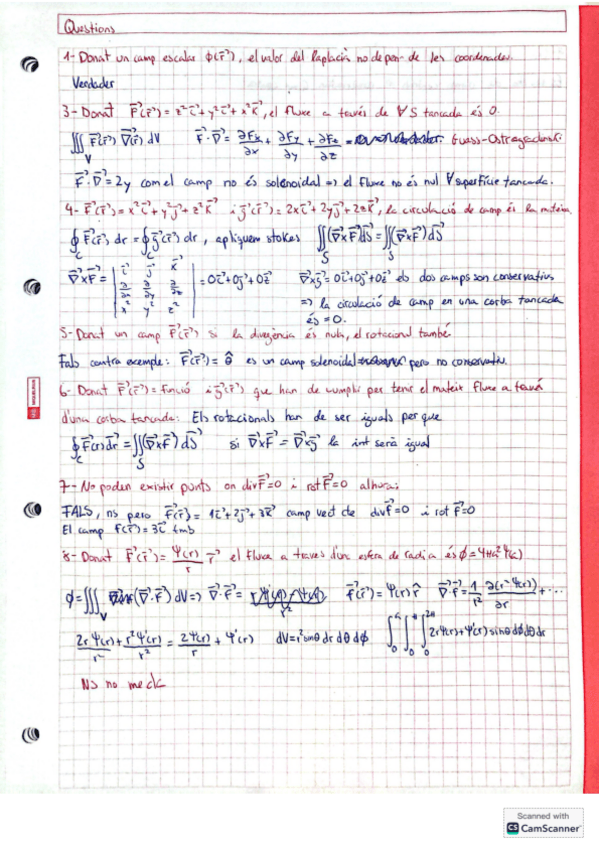 Questions
1- Donat un camp escalar φ(r⃗), el valor del laplacià no depen de les coordenades.
Verdader
3- Donat F⃗(r⃗) = z²i⃗ + y²j⃗ + x²k⃗, el fluxe a través de ∀ S tancada és 0.
∭_V F⃗(r⃗) ∇⃗(r⃗) dV F⃗·∇⃗ = ∂Fx/∂x + ∂Fy/∂y + ∂Fz/∂z = Guass-Ostrogadski
F⃗·∇⃗ = 2y com el camp no és solenoidal => el fluxe no és nul ∀ superfície tancada.
4- F⃗(r⃗) = x²i⃗ + y²j⃗ + z²k⃗ i g⃗(r⃗) = 2xi⃗ + 2yj⃗ + 2zk⃗, la circulació de camp és la mateixa
∮_C F⃗(r⃗) dr = ∮_C g⃗(r⃗) dr, apliquem stokes ∬_S (∇⃗×F⃗)dS⃗ = ∬(∇⃗×F⃗)dS⃗
∇⃗×F⃗ = | i⃗ j⃗ k⃗ | ∂/∂x ∂/∂y ∂/∂z | x² y² z² | = 0i⃗ + 0j⃗ + 0z⃗ ∇⃗×g⃗ = 0i⃗ + 0j⃗ + 0z⃗ els dos camps son conservatius
=> la circulació de camp en una corba tancada
és = 0.
5- Donat un camp F⃗(r⃗) si la divergència és nula, el rotacional també.
Fals contra exemple: F⃗(r⃗) = θ̂ es un camp solenoidal pero no conservatiu.
6- Donat F⃗(r⃗) = funció i g⃗(r⃗) que han de cumplir per tenir el mateix fluxe a través
d'una corba tancada: Els rotacionals han de ser iguals per que
∮_C F⃗(r) dr⃗ = ∬_S (∇⃗×F⃗) dS⃗ si ∇⃗×F⃗ = ∇⃗×g⃗ la int serà igual
7- No poden existir punts on div F⃗=0 i rot F⃗=0 alhora:
FALS, ns pero F⃗(r⃗) = 1i⃗ + 2j⃗ + 3k⃗ camp vect de div f⃗=0 i rot F⃗=0
El camp f(r⃗) = 3i⃗ tmb
8- Donat F⃗(r⃗) = Ψ(r)/r r⃗ el fluxe a traves d'un esfera de radi a és ϕ = 4πa²Ψ(a)
ϕ = ∭_V (∇⃗·F⃗) dV => ∇⃗·F⃗ = f⃗(r⃗) = Ψ(r) r̂ ∇⃗·F⃗ = 1/r² ∂(r²Ψ(r))/∂r + ...
2rΨ(r)/r² + r²Ψ'(r)/r² = 2Ψ(r)/r + Ψ'(r) dV = r² sinθ dr dθ dϕ ∫₀^a ∫₀^π ∫₀^2π 2rΨ(r) + Ψ'(r) sinθ dϕ dθ dr
Ns no me da
Scanned with
CS CamScanner